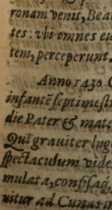 ronam venit, Bea
tes: vbi omnes eu
tem, perceperunt,
Anno 1430. C
infantē septimest
die Pater & mate
Qui grauiter lug
spectaculum vide
mulata, conspsag
uitur ad Cunata